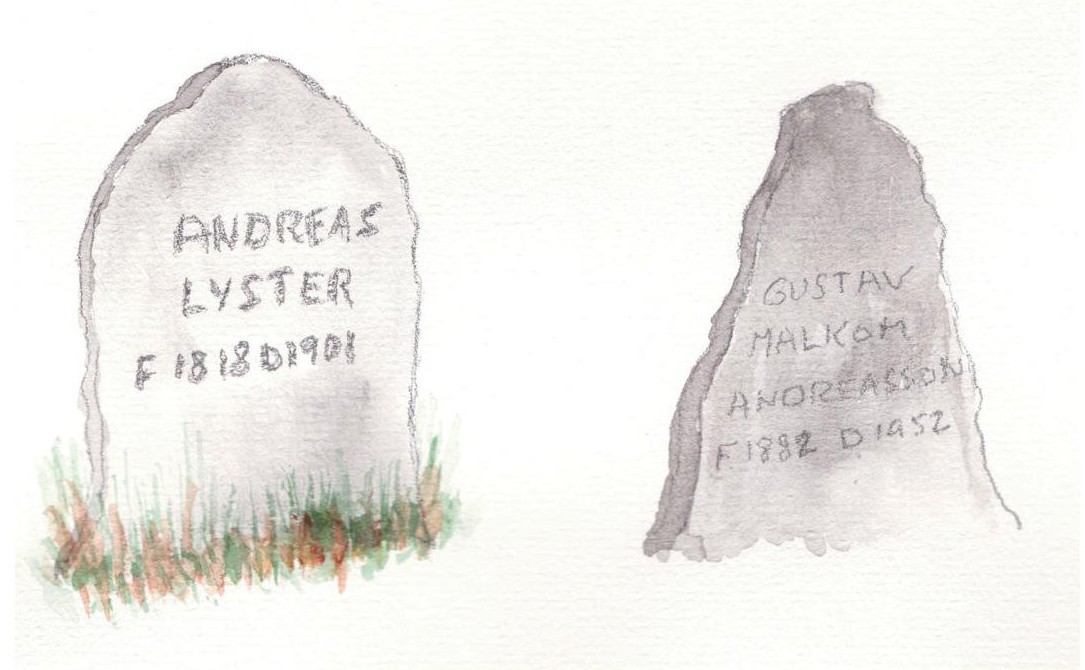 ANDREAS
LYSTER
F 1818 D 1901
GUSTAV
MALKOM
ANDREASSON
F 1882 D 1952